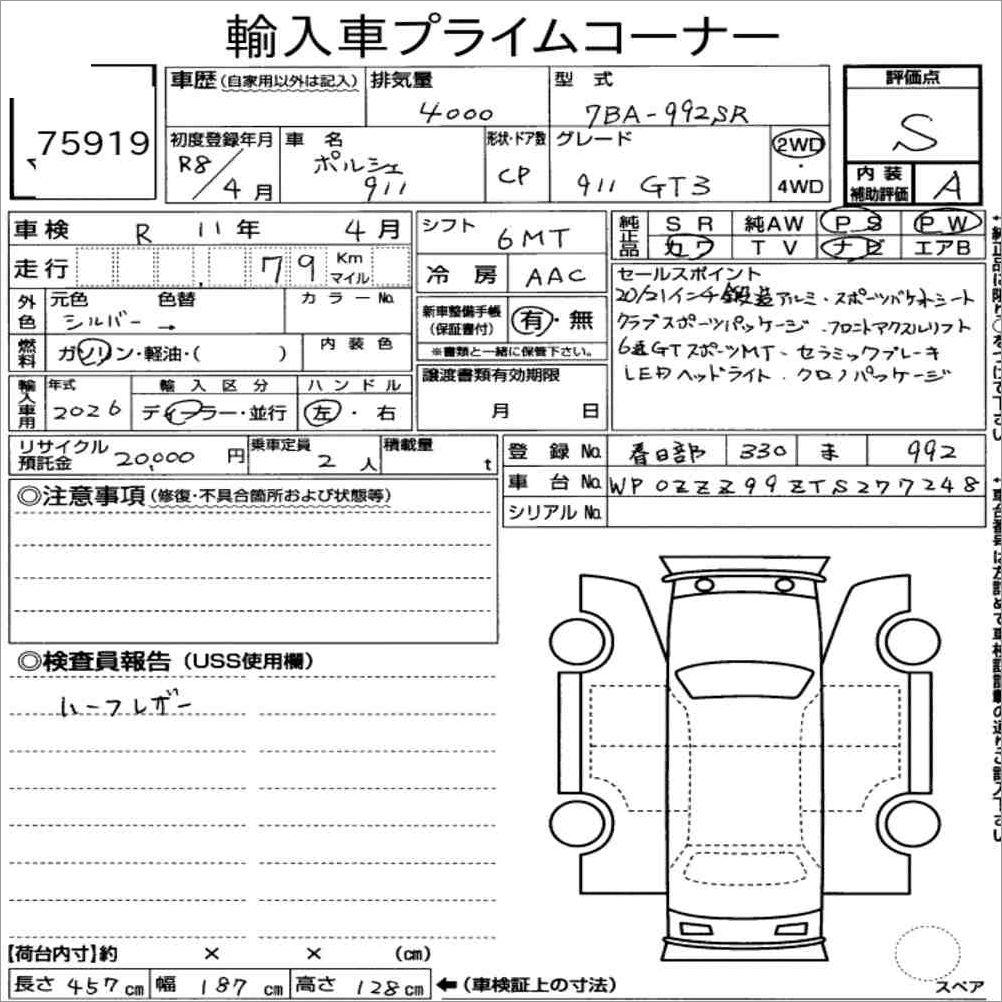 輸入車プライムコーナー
75919
車歴(自家用以外は記入)
排気量
4000
型式
7BA-992SR
評価点
S
内装補助評価
A
初度登録年月
R8/4月
車名
ポルシェ
911
形状・ドア数
CP
グレード
911 GT3
2WD
・
4WD
車検 R 11年 4月
走行 79 Km マイル
シフト
6MT
冷房 AAC
純正品
SR 純AW PS PW
カワ TV ナビ エアB
外色
元色 色替
シルバー →
カラーNo.
燃料
ガソリン・軽油・( )
内装色
新車整備手帳
(保証書付)
有・無
※書類と一緒に保管下さい。
セールスポイント
20/21インチ鍛造アルミ・スポーツバケットシート
クラブスポーツパッケージ・フロントアクスルリフト
6速GTスポーツMT・セラミックブレーキ
LEDヘッドライト・クロノパッケージ
輸入車用
年式
2026
輸入区分
ディーラー・並行
ハンドル
左・右
譲渡書類有効期限
月 日
リサイクル預託金 20,000円
乗車定員
2人
積載量
t
登録No. 春日部 330 ま 992
車台No. WP0ZZZ99ZTS277248
シリアルNo.
◎注意事項(修復・不具合箇所および状態等)
◎検査員報告(USS使用欄)
ハーフレザー
【荷台内寸】約 × × (cm)
長さ 457cm 幅 187cm 高さ 128cm ←(車検証上の寸法)
スペア